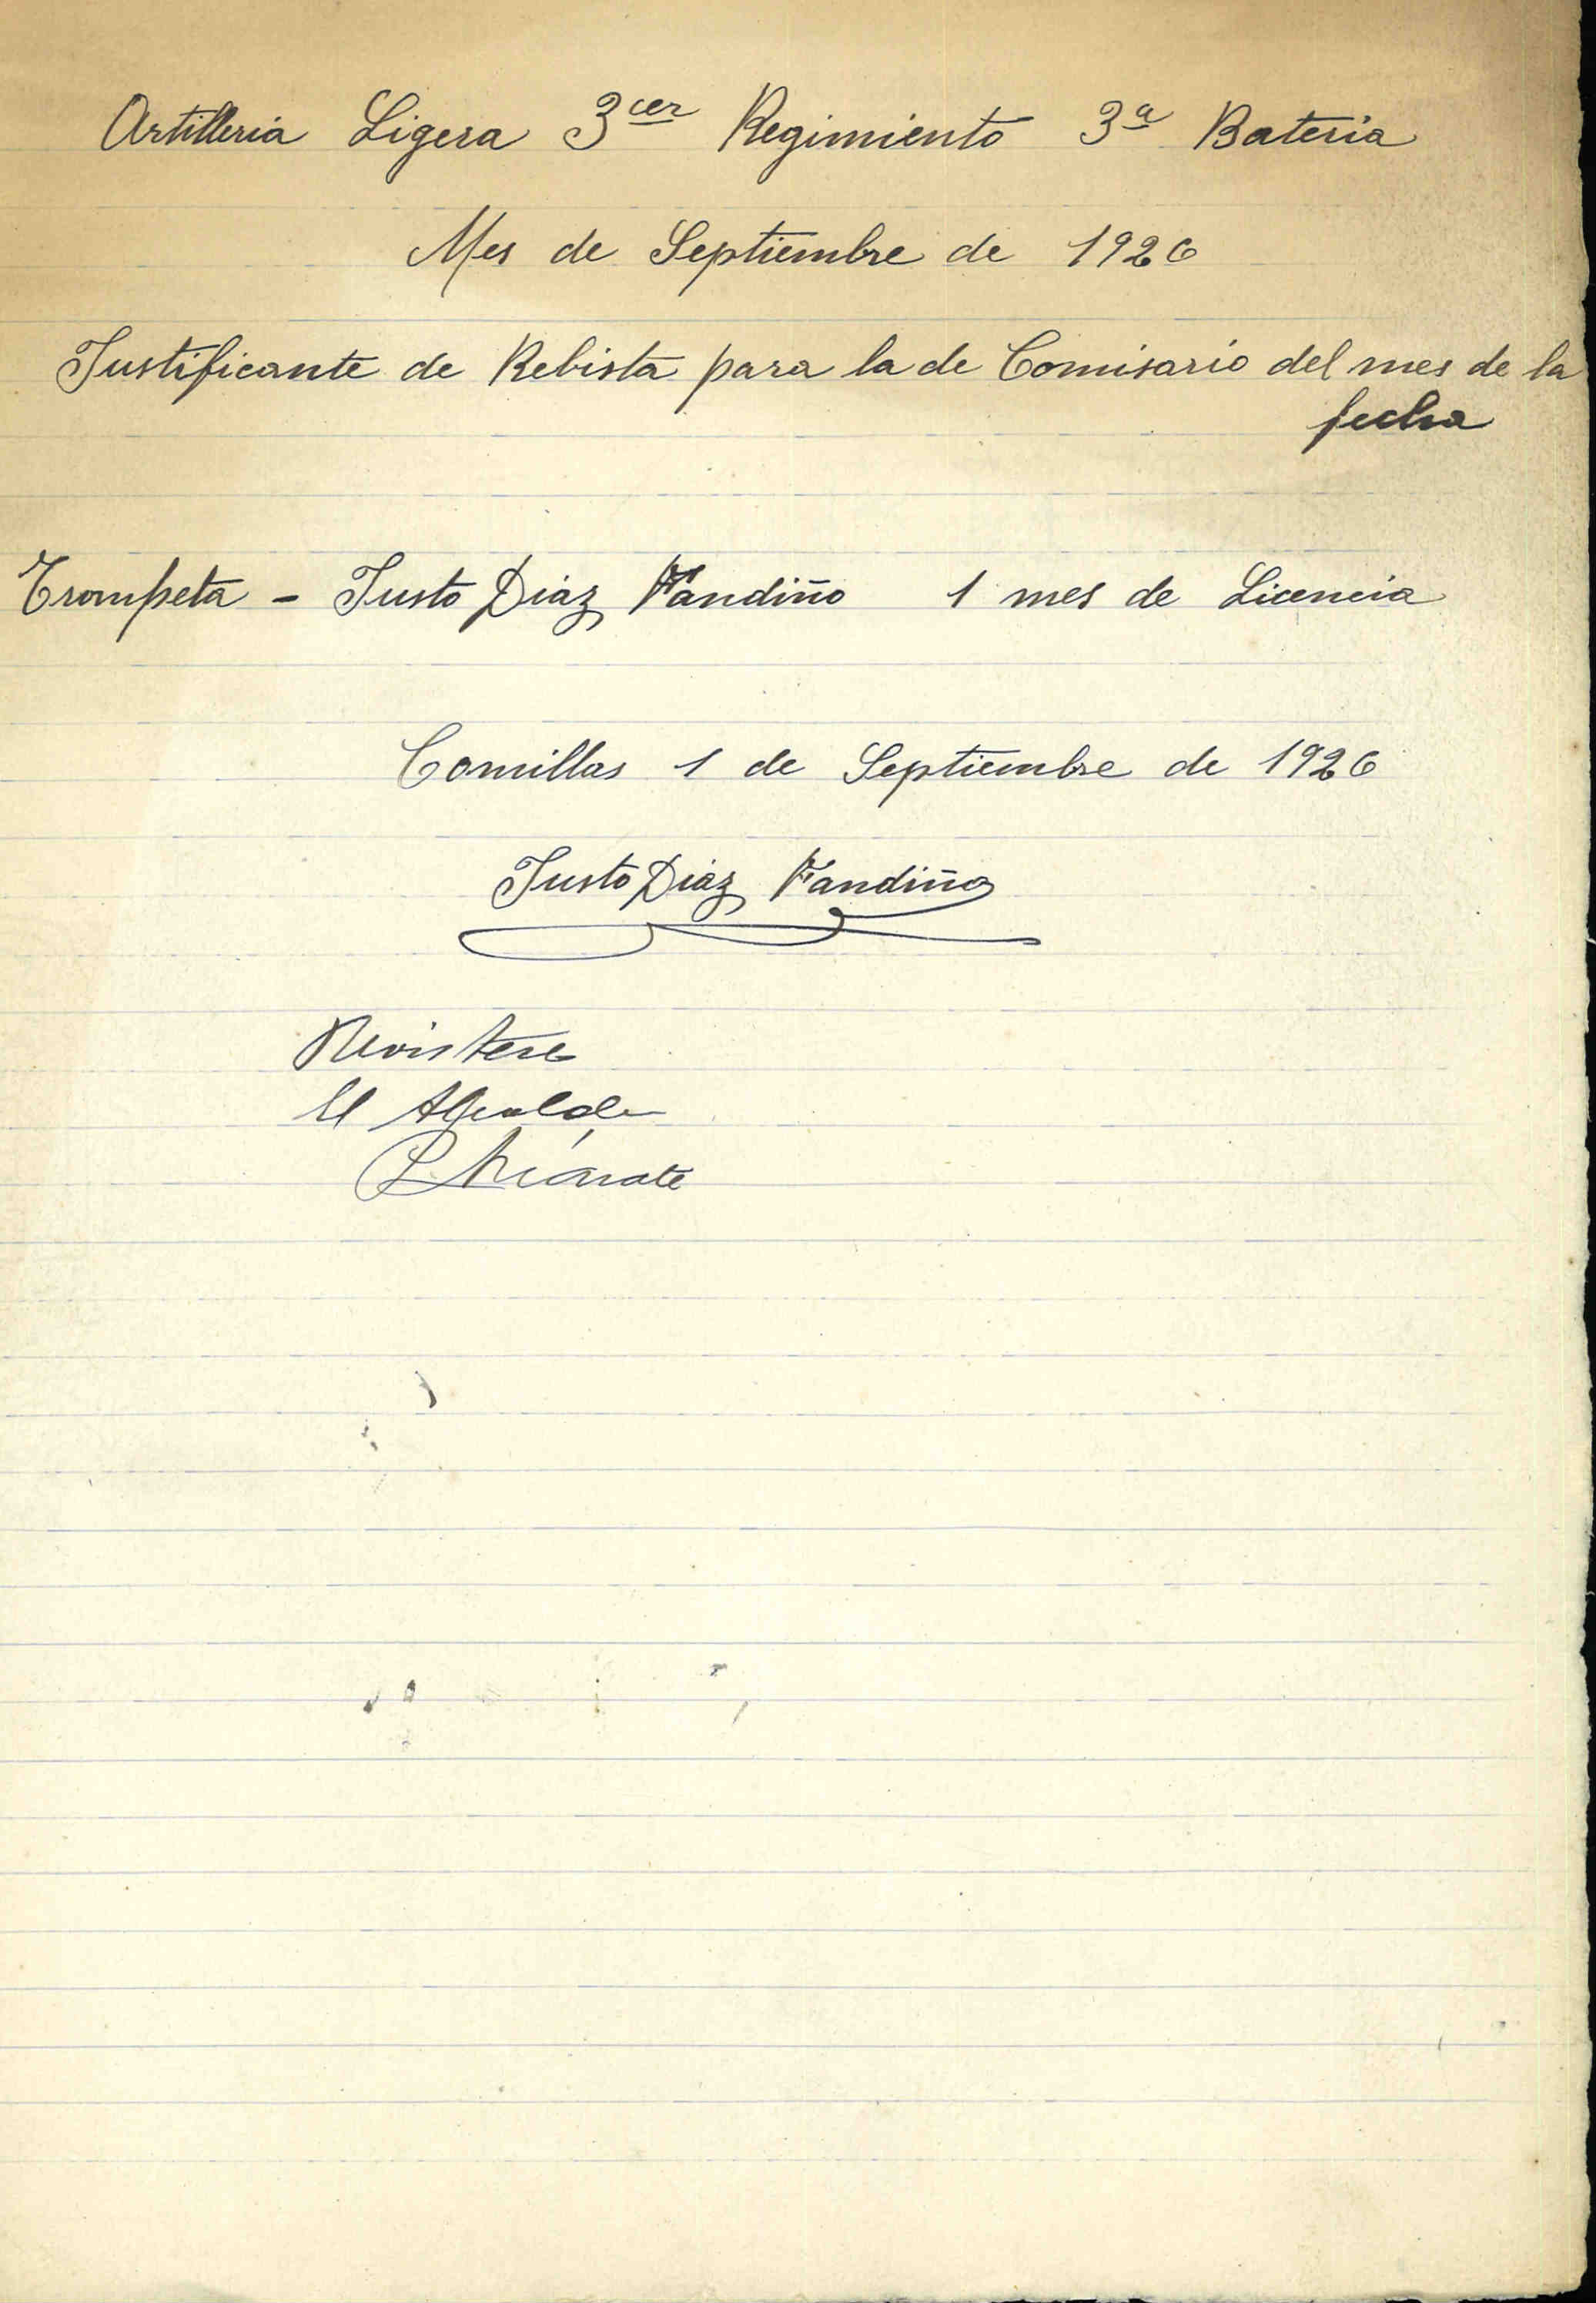 Artilleria Ligera 3cer Regimiento 3ª Bateria
Mes de Septiembre de 1926
Justificante de Rebista para la de Comisario del mes de la
fecha
Trompeta - Justo Diaz Fandiño 1 mes de Licencia
Comillas 1 de Septiembre de 1926
Justo Diaz Fandiño
Revistese
El Alcalde